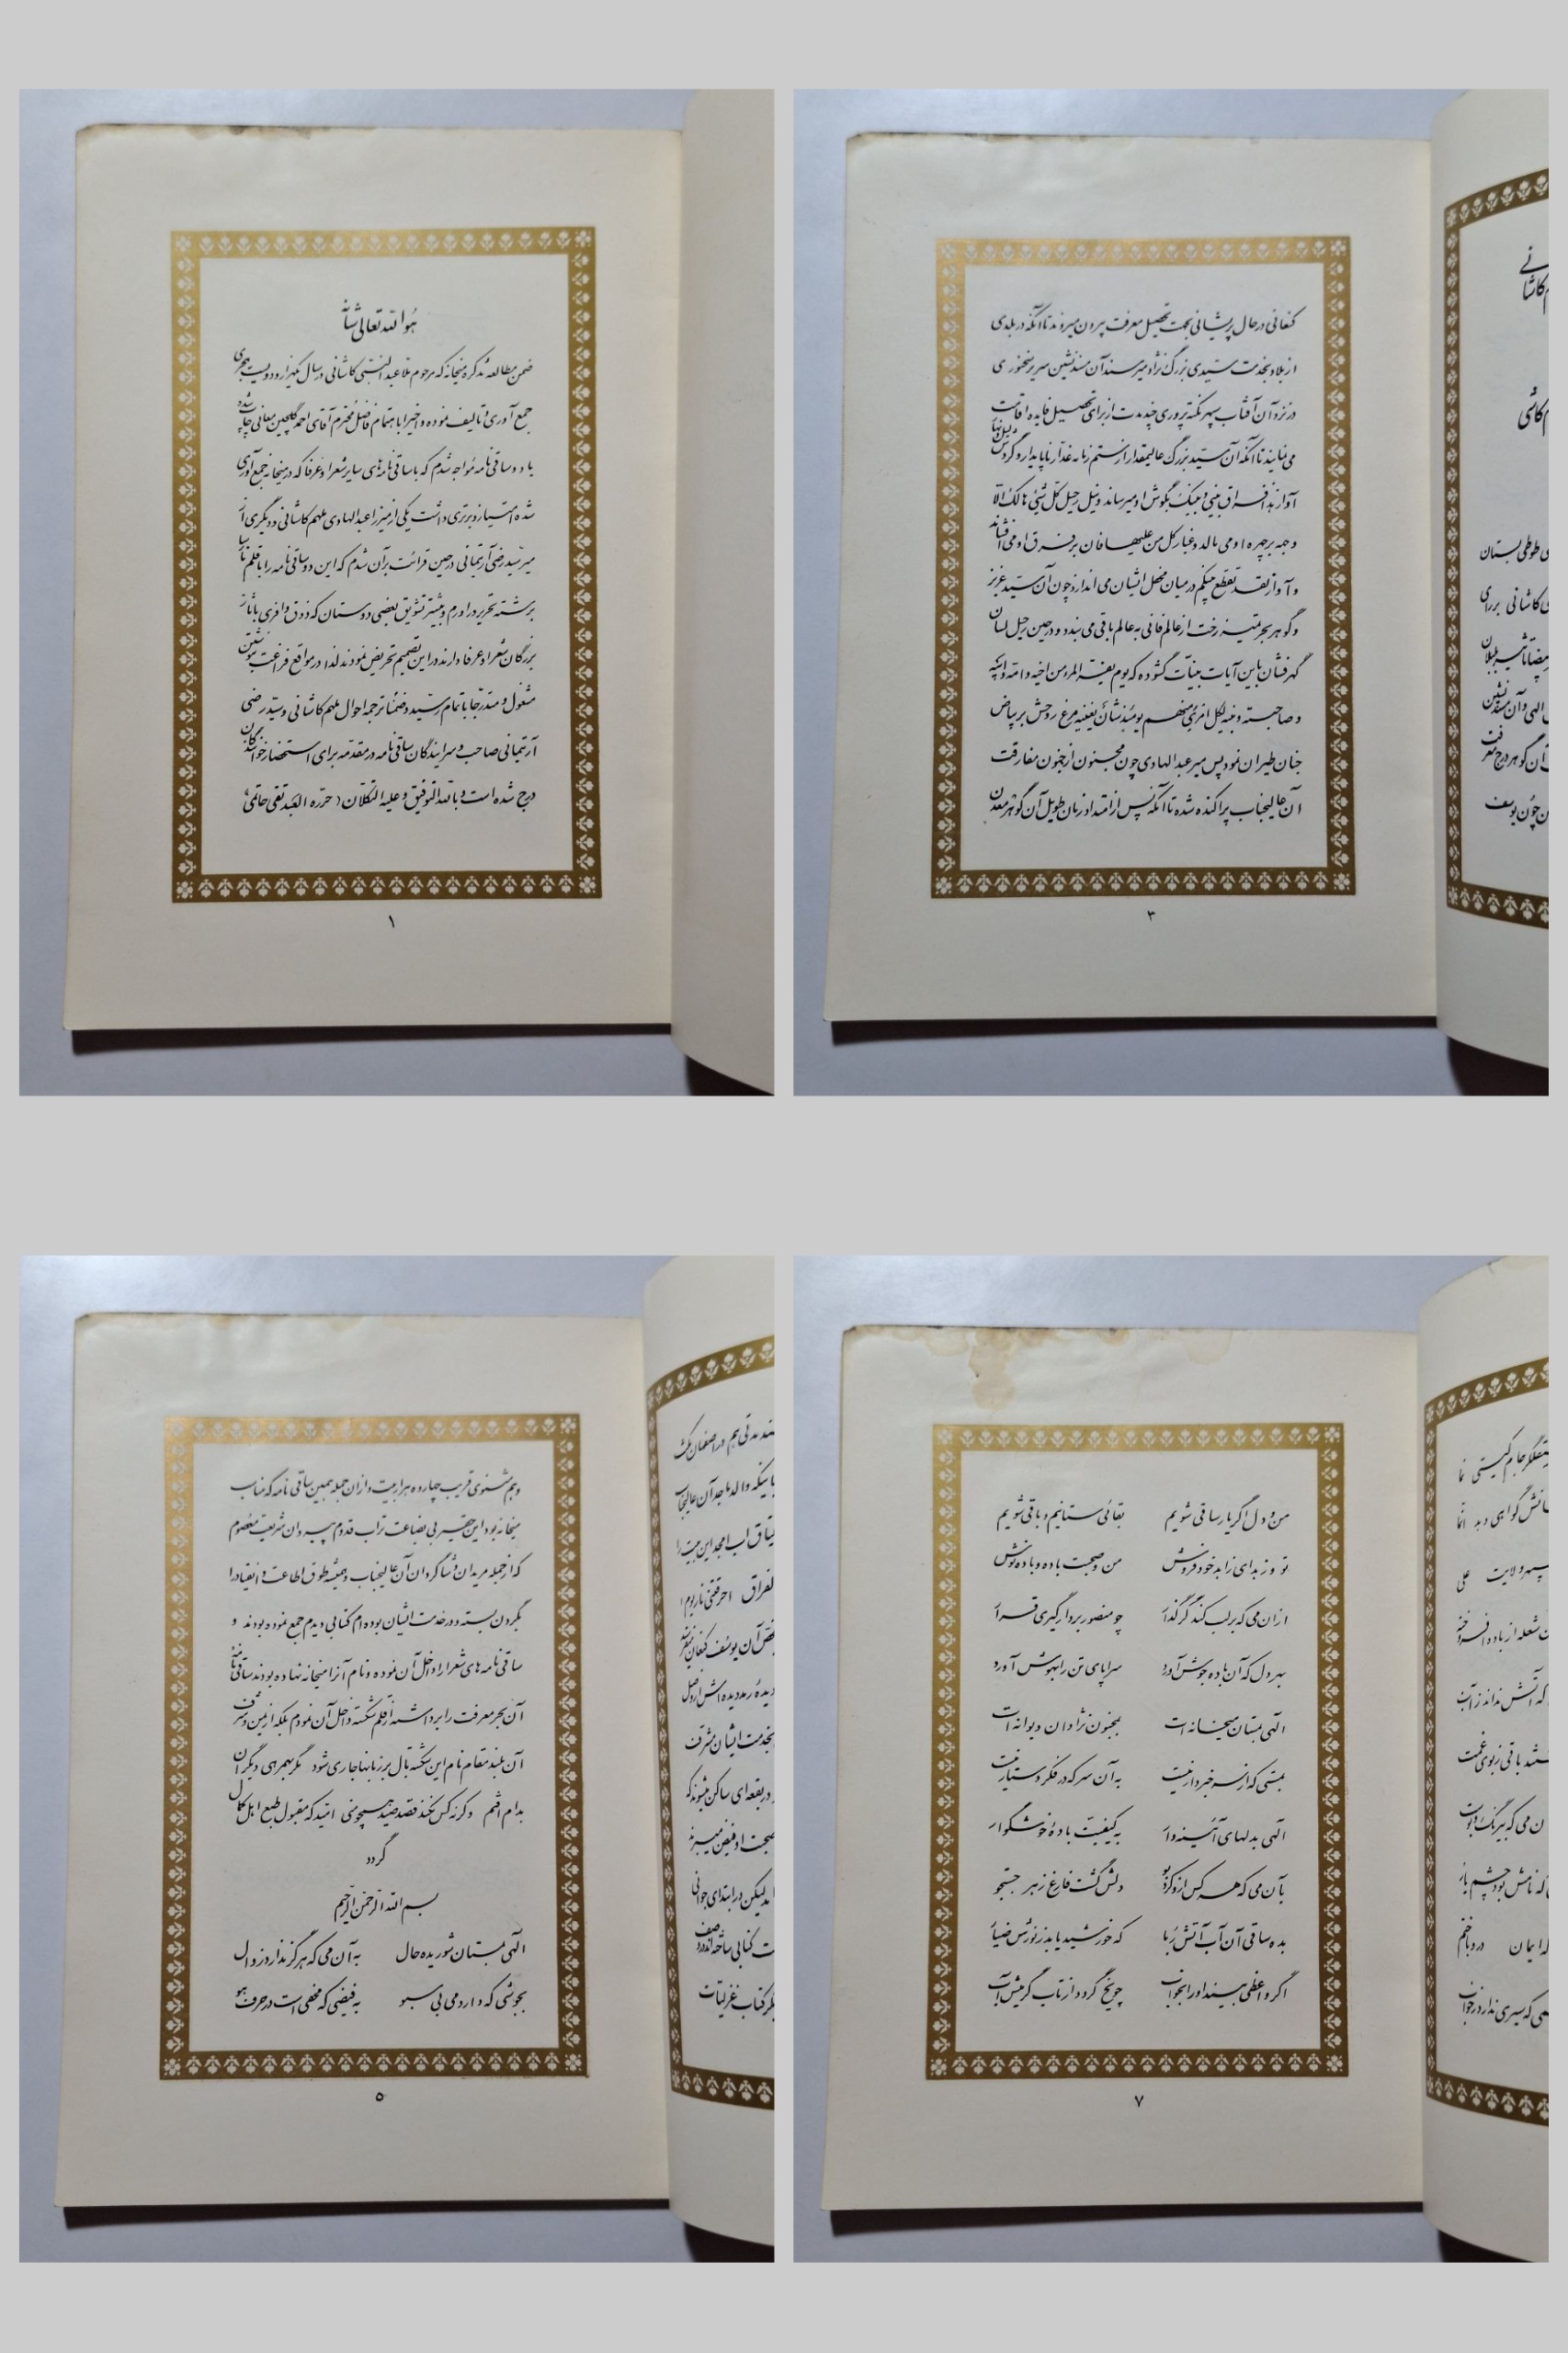 هو الله تعالی شأنه
ضمن مطالعه تذکره میخانه که مرحوم ملا عبدالنبی کاشانی در سال یکهزار و دویست هجری
جمع آوری و تالیف نموده و اخیرا باهتمام فاضل محترم آقای احمد گلچین معانی چاپ شده
با دو ساقی نامه مواجه شدم که با ساقی نامه‌های سایر شعرا و عرفا که در میخانه جمع آوری
شده امتیاز و برتری داشت یکی از میرزا عبدالهادی ملهم کاشانی و دیگری از
میر سید رضی آرتیمانی در حین قرائت بر آن شدم که این دو ساقی نامه را با قلم نازیبا
برشته تحریر درآورم و بیشتر تشویق بعضی دوستان که ذوق وافری بآثار
بزرگان شعرا و عرفا دارند در این تصمیم تحریض نمودند لذا در مواقع فراغت بنوشتن
مشغول و متدرجا باتمام رسید و ضمنا ترجمه احوال ملهم کاشانی و سید رضی
آرتیمانی صاحب و سرایندگان ساقی نامه در مقدمه برای استحضار خوانندگان
درج شده است و بالله التوفیق و علیه التکلان (حرره العبد تقی حاتمی)
۱
کنعانی در حال پریشانی بجهت تحصیل معرفت بیرون میروند تا آنکه در بلدی
از بلاد بخدمت سیدی بزرگ نژاد میرسند آن مسند نشین سریر سخنوری
در نزد آن آفتاب سپهر نکته پروری چند مدت از برای تحصیل فایده اقامت
می‌نمایند تا آنکه آن سید بزرگ عالیمقدار از ستم زمانه غدار ناپایدار و گردش لیل و نهار
آواز هذا فراق بینی و بینک بگوش او میرساند و نیل رحیل کل شیئ هالک الا
وجهه بر چهره او می مالد و غبار کل من علیها فان بر فرق او می افشاند
و آواز لقد تقطع بینکم در میان محفل ایشان می اندازد چون آن سید عزیز
و گوهر بحر تمیز رخت از عالم فانی به عالم باقی می بندد و در حین رحیل لسان
گهر فشان باین آیات بینات گشوده که یوم یفر المرء من اخیه و امه و ابیه
و صاحبته و بنیه لکل امرئ منهم یومئذ شأن یغنیه مرغ روحش بریاض
جنان طیران نمود پس میر عبدالهادی چون مجنون از جنون مفارقت
آن عالیجناب پراکنده شده تا آنکه پس از امتداد زمان طویل آن گوهر معدن
۳
و هم مثنوی قریب چهارده هزار بیت و از آن جمله همین ساقی نامه که مناسب
میخانه بود این حقیر بی بضاعت تراب قدوم پیروان شریعت معصوم
که از جمله مریدان و شاگردان آن عالیجناب و همیشه طوق اطاعت و انقیاد را
بگردن بسته و در خدمت ایشان بوده ام کتابی دیدم جمع نموده بودند و
ساقی نامه های شعرا را داخل آن نموده و نام آنرا میخانه نهاده بودند ساقی نامه
آن بحر معرفت را برداشته از قلم شکسته داخل آن نمودم بلکه از یمن و شرف
آن بلند مقام نام این شکسته بال بر زبانها جاری شود مگر بهمرهی دیگران
بدام افتم وگرنه کس نکند قصد صید همچو منی امید که مقبول طبع اهل کمال
گردد
بسم الله الرحمن الرحیم
الهی بمستان شوریده حال به آن می که هرگز ندارد زوال
بجوشی که دارد می بی سبو به فیضی که مخفی است در حرف هو
۵
من و دل اگر یار ساقی شویم بقائی ستانیم و باقی شویم
تو و زهد ای زاهد خود فروش من و صحبت باده و باده نوش
از آن می که بر لب کند گر گذار چو منصور بر دار گیری قرار
بهر دل که آن باده جوش آورد سراپای تن را بهوش آورد
الهی بمستان میخانه ات بمجنون نژادان دیوانه ات
بمستی که از سر خبردار نیست به آن سر که در فکر دستار نیست
الهی بدلهای آئینه وار به کیفیت باده خوشگوار
بآن می که هر کس از او کرد بو دلش گشت فارغ ز هر جستجو
بده ساقی آن آب آتش ربا که خورشید یابد ز نورش ضیا
اگر واعظی بیند او را بخواب چو یخ گردد از تاب گرمیش آب
۷